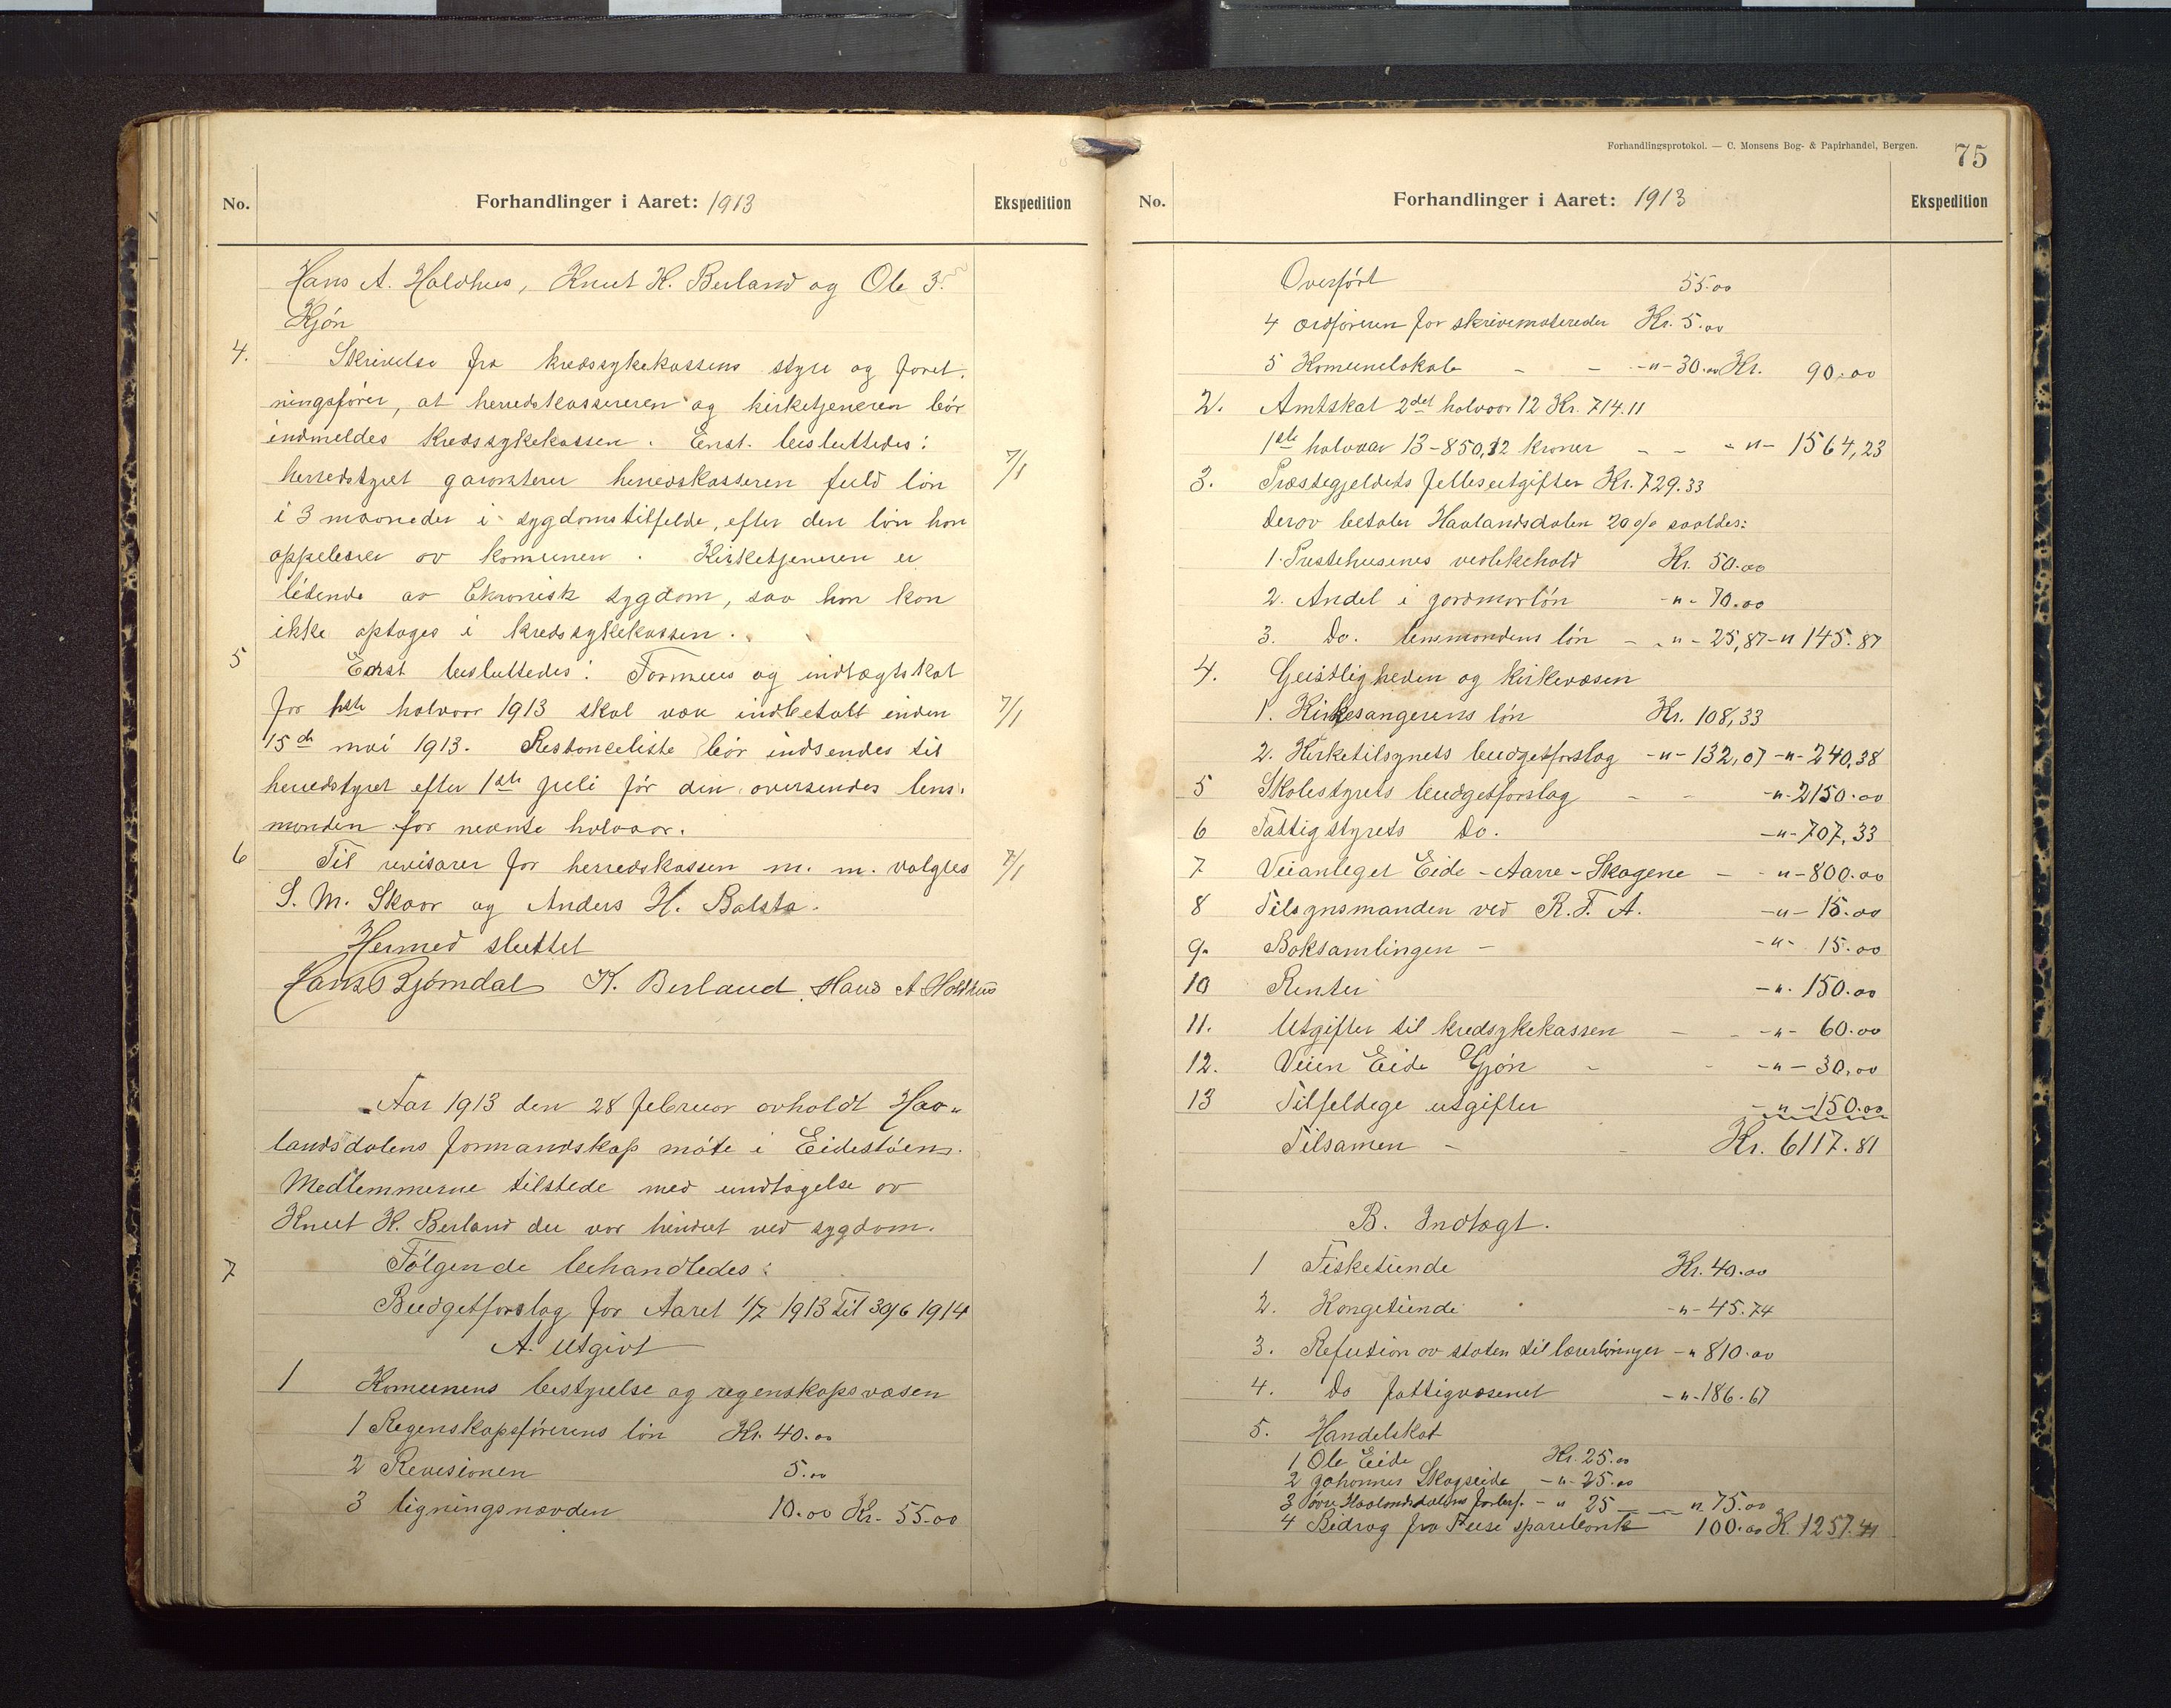 No.
Forhandlinger i Aaret: 1913
Ekspedition
Hans A. Holdhus, Knut K. Berland og Ole 3.
Kjøn
4.
Skrivelse fra kredssykekassens styre og foret.
ningsfører, at herredskassereren og kirketjeneren bør
indmeldes kredssykekassen. Enst. besluttedes:
herredstyret garanterer herredskasseren fuld løn
7/1
i 3 maaneder i sygdomstilfelde, efter den løn han
oppebærer av komunen. Kirketjeneren er
lidende av kronisk sygdom, saa han kan
ikke optages i kredssykekassen.
5
Enst besluttedes: Formues og indtægtskat
for 1ste halvaar 1913 skal være indbetalt inden
7/1
15de mai 1913. Restanceliste bør indsendes til
herredstyret efter 1ste juli før den oversendes lens.
manden for nevnte halvaar.
6
Til revisorer for herredskassen m. m. valgtes
7/1
S. M. Skaar og Anders H. Batsta.
Hermed sluttet
Hans Gjømdal K. Berland, Hans A Holdhus
Aar 1913 den 28 februar avholdt Haa-
landsdalens formandskap møte i Eidestøen.
Medlemmerne tilstede med undtagelse av
Knut K. Berland der var hindret ved sygdom.
7
Følgende behandledes:
Budgetforslag for Aaret 1/7 1913 til 30/6 1914
A. Utgivt
1 Komunens bestyrelse og regenskapsvæsen
1 Regenskapsførerens løn Kr. 40.00
2 Revisionen 5.00
3 ligningsnævden 10.00 Kr. 55.00
Forhandlingsprotokol. — C. Monsens Bog- & Papirhandel, Bergen.
75
No.
Forhandlinger i Aaret: 1913
Ekspedition
Overført 55.00
4 ordføreren for skrivematereder Kr. 5.00
5 Komunelokale - - -"- 30.00 Kr. 90.00
2. Amtskat 2det halvaar 12 Kr. 714.11
1ste halvaar 13 - 850,12 kroner - - -"- 1564,23
3. Præstegjeldets fellesutgifter Kr. 729.33
Derav betaler Haalandsdalen 20% saaledes:
1. Prestehusenes vedlikehold Kr. 50.00
2. Andel i jordmorløn -"- 70.00
3. Do. lensmandens løn - -"- 25,87 -"- 145.87
4. Geistligheden og kirkevæsen
1. Kirkesangerens løn Kr. 108,33
2. Kirketilsynets budgetforslag -"- 132,07 -"- 240,38
5 Skolestyrets budgetforslag - - -"- 2150.00
6 Fattigstyrets Do. -"- 707,33
7 Veianleget Eide - Aarre - Skogene - -"- 800.00
8 Tilsynsmanden ved R. F. A. -"- 15.00
9. Boksamlingen - -"- 15.00
10 Renter -"- 150.00
11. Utgifter til kredsykekassen - - -"- 60.00
12. Veien Eide Gjøn - - -"- 30,00
13 Tilfeldege utgifter -"- 150.00
Tilsamen - - Kr. 6117.81
B. Indtægt.
1 Fisketiende Kr. 40.00
2. Kongetiende -"- 45.74
3. Refusion av staten til lærerlønninger -" 810.00
4. Do fattigvæsenet -"- 186.67
5. Handelskat
1 Ole Eide Kr. 25.00
2 Johannes Skogseide -"- 25.00
3 øvre Haalandsdalens forbrf. -" 25 - -" 75.00
4 Bidrag fra Fuse sparebank 100.00 K. 1257.41